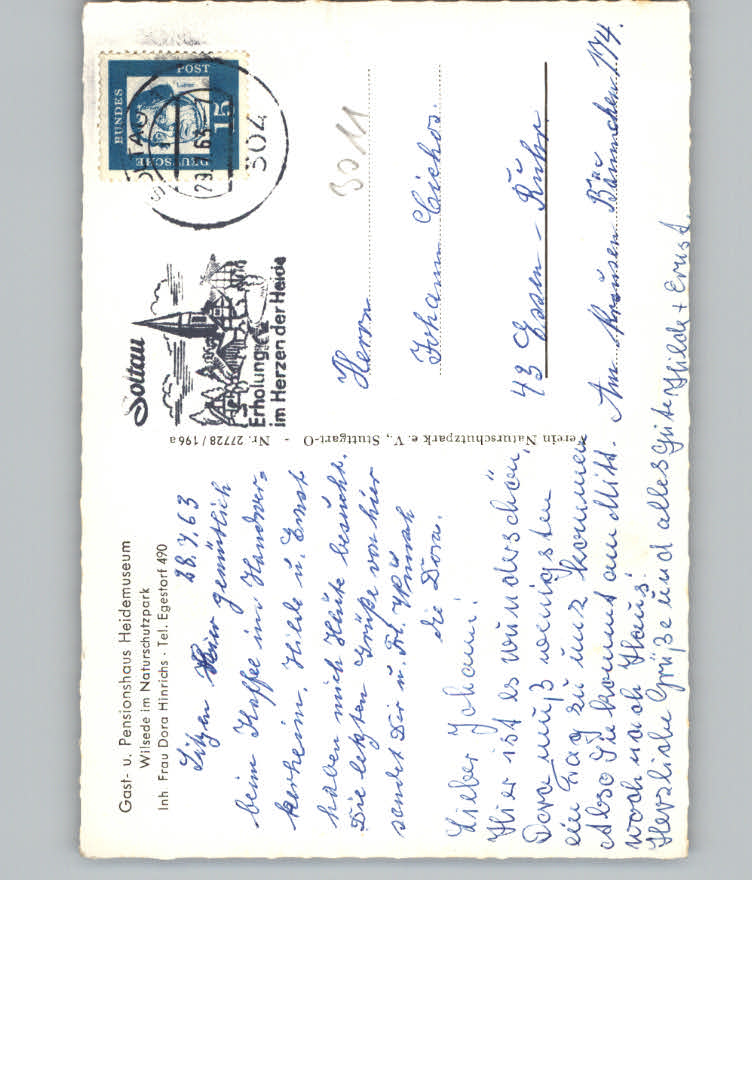 Gast- u. Pensionshaus Heidemuseum
Wilsede im Naturschutzpark
Inh Frau Dora Hinrichs · Tel. Egestorf 490
28.7.63
Sitzen Hier gemütlich
beim Kaffee im Handwer-
kerheim. Hilde u. Ernst
haben mich Heute besucht.
Die letzten Grüße von hier
sendet Dir u. Frl.
die Dora.
Lieber Johann!
Hier ist es wunderschön,
Dora muß wenigsten
ein Tag zu uns kommen
Also Sie kommt am Mitt.
woch nach Haus!
Herzliche Grüße und alles gute Hilde + Ernst.
Verein Naturschutzpark e. V., Stuttgart-O - Nr. 27728/196a
Soltau
Erholung
im Herzen der Heide
SOLTAU
29.7.63
304
DEUTSCHE
BUNDES
POST
15
Luther
3011
Herrn
Johann Cichos.
43 Essen - Ruhr
Am Krausen Bäumchen 114.